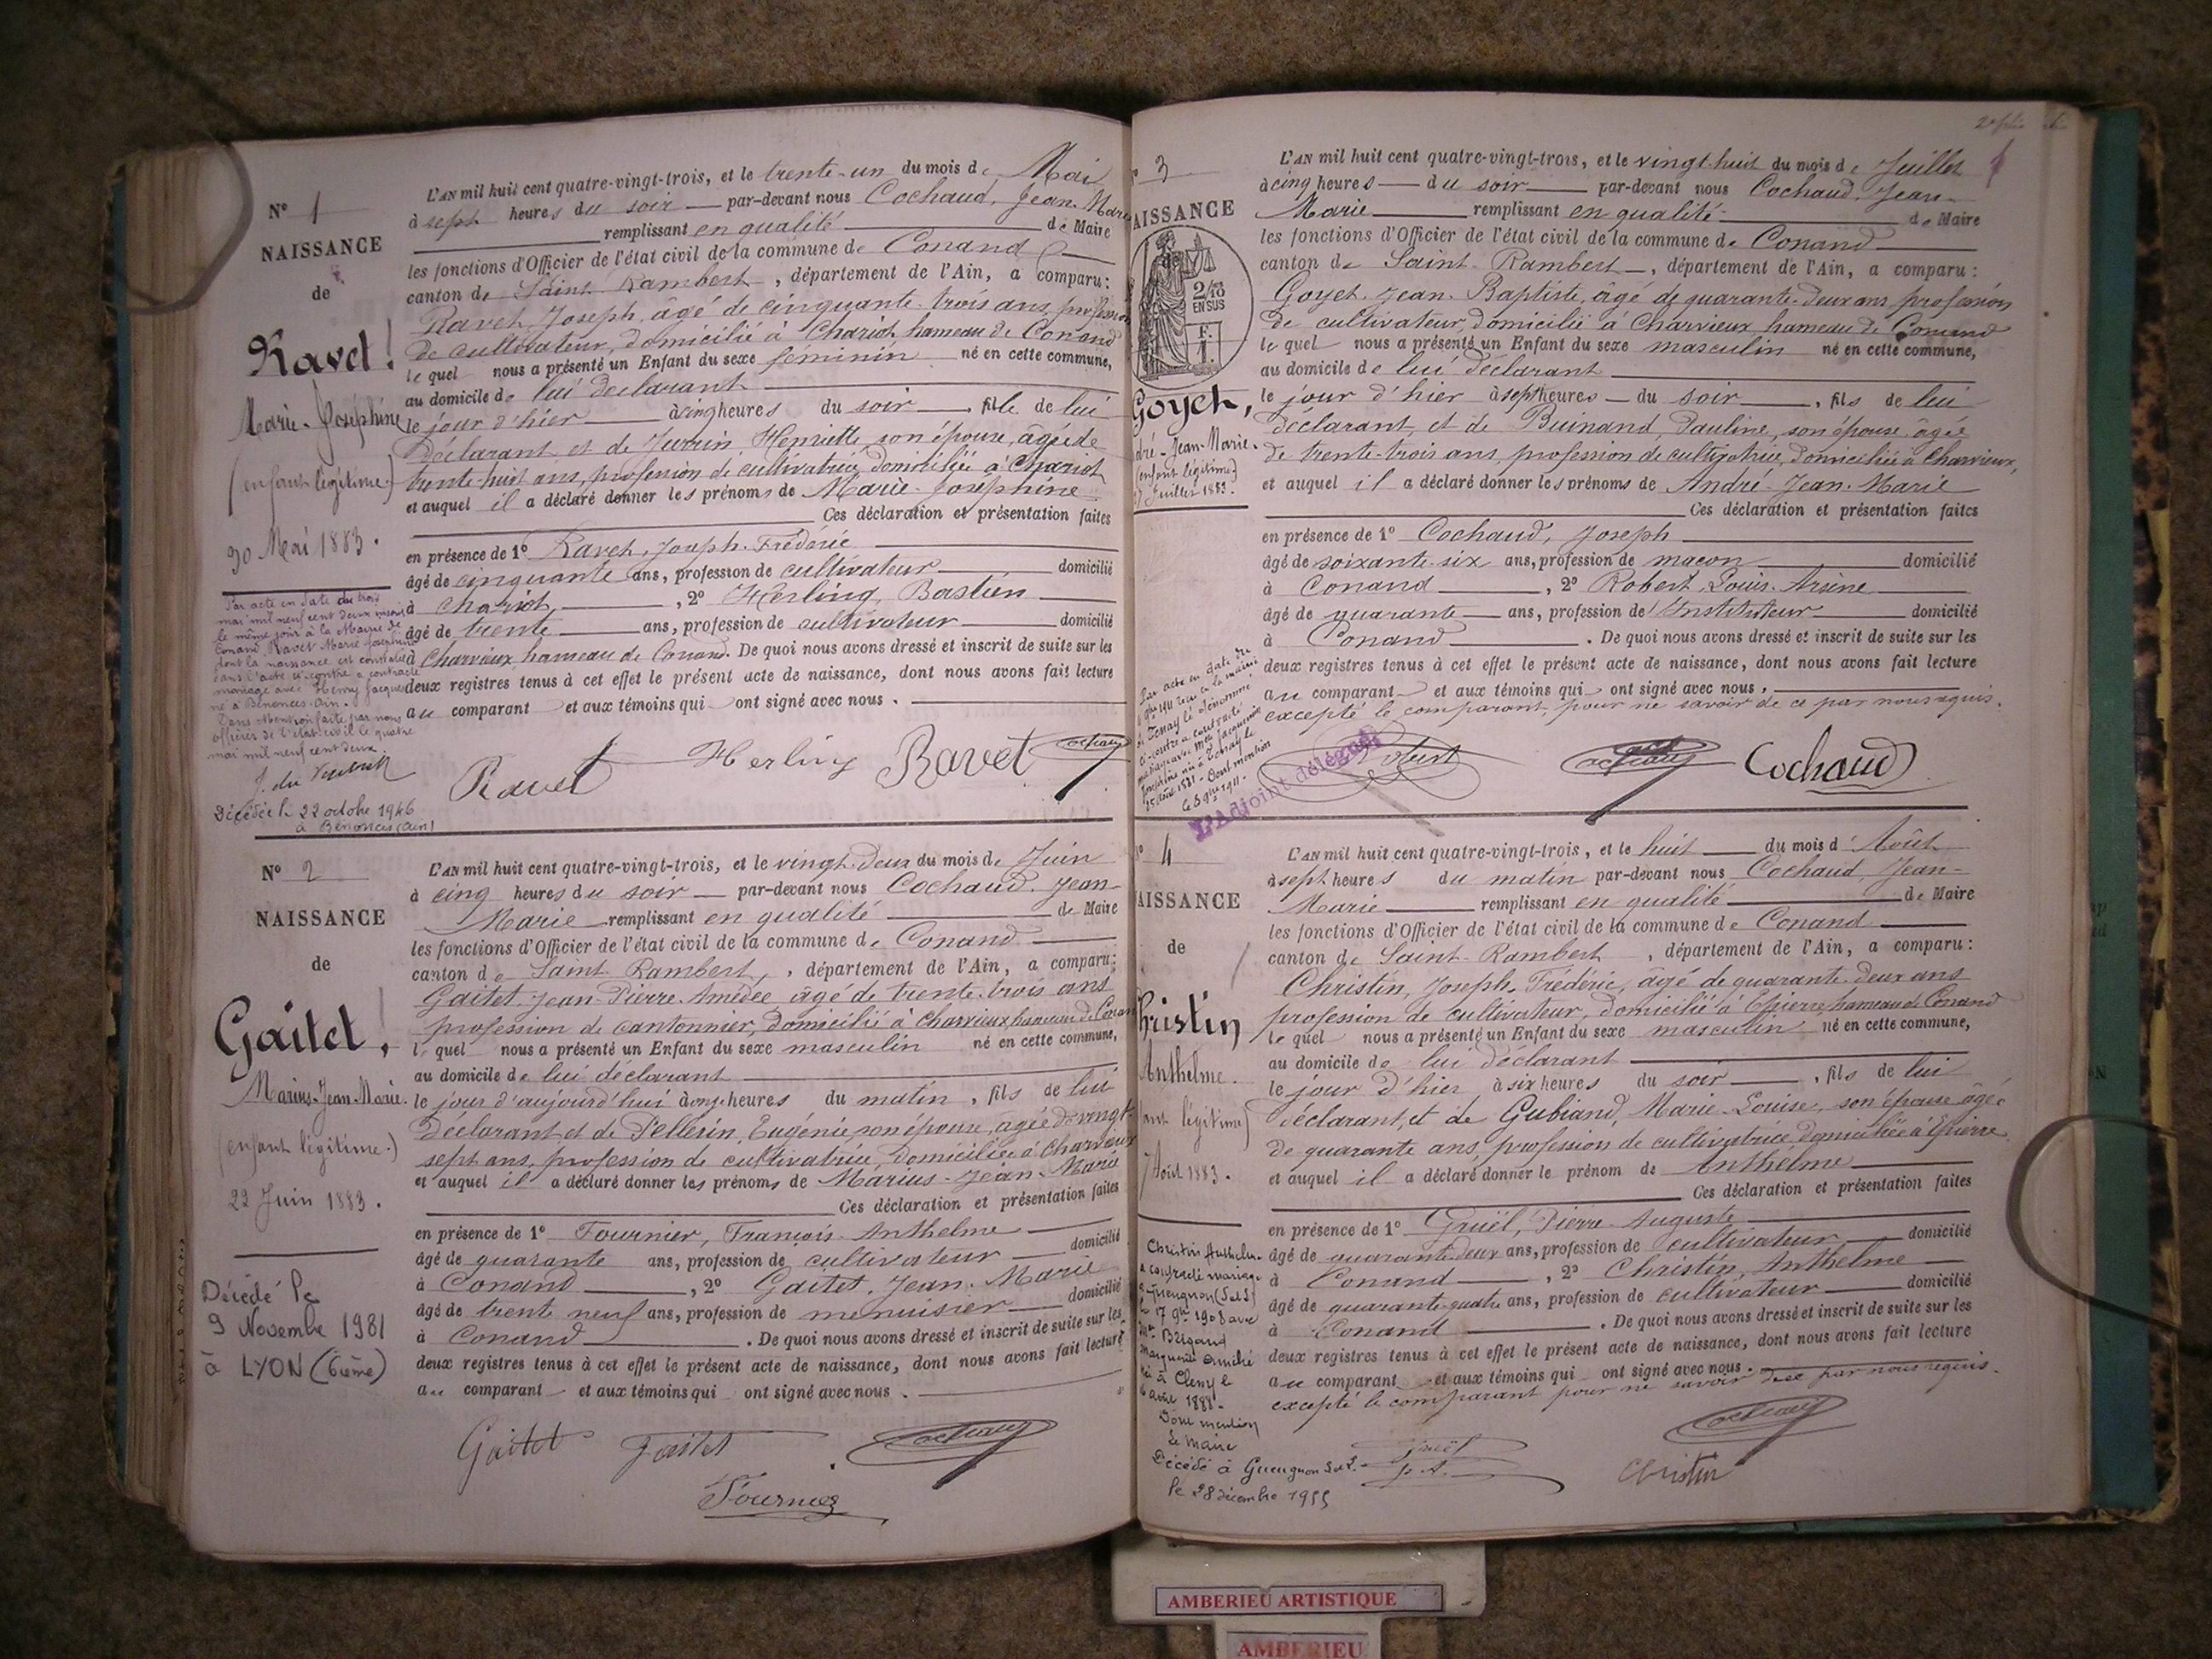 Nº 1
NAISSANCE
de
Ravet
Marie-Joséphine
(enfant légitime.)
30 Mai 1883.
Par acte en date du trois
mai mil neuf cent deux inscrit
le même jour à la Mairie de
Conand, Ravet Marie Joséphine
dont la naissance est constatée
dans l'acte ci-contre a contracté
mariage avec Henry Jacques
né à Bénonces-Ain.
Dont Mention faite par nous
officier de l'état-civil le quatre
mai mil neuf cent deux.
Décédée le 22 octobre 1946
à Bénonces (Ain)
L'AN mil huit cent quatre-vingt-trois, et le trente-un du mois de Mai
à sept heures du soir par-devant nous Cochaud, Jean-Marie
remplissant en qualité de Maire
les fonctions d'Officier de l'état civil de la commune de Conand
canton de Saint Rambert, département de l'Ain, a comparu:
Ravet, Joseph, âgé de cinquante-trois ans, profession
de cultivateur, domicilié à Chariot, hameau de Conand
lequel nous a présenté un Enfant du sexe féminin né en cette commune,
au domicile de lui déclarant
le jour d'hier à cinq heures du soir, fille de lui
déclarant et de Juvrin Henriette, son épouse, âgée de
trente-huit ans, profession de cultivatrice, domiciliée à Chariot
et auquel il a déclaré donner les prénoms de Marie-Joséphine
Ces déclaration et présentation faites
en présence de 1º Ravet, Joseph-Frédéric
âgé de cinquante ans, profession de cultivateur domicilié
à Chariot, 2º Herling, Bastien
âgé de trente ans, profession de cultivateur domicilié
à Charvieux, hameau de Conand. De quoi nous avons dressé et inscrit de suite sur les
deux registres tenus à cet effet le présent acte de naissance, dont nous avons fait lecture
au comparant et aux témoins qui ont signé avec nous.
Ravet Herling Ravet Cochaud
Nº 2
NAISSANCE
de
Gaitet,
Marius-Jean-Marie.
(enfant légitime.)
22 Juin 1883.
Décédé le
9 Novembre 1981
à LYON (6ième)
L'AN mil huit cent quatre-vingt-trois, et le vingt-deux du mois de Juin
à cinq heures du soir par-devant nous Cochaud, Jean-
Marie remplissant en qualité de Maire
les fonctions d'Officier de l'état civil de la commune de Conand
canton de Saint Rambert, département de l'Ain, a comparu:
Gaitet, Jean-Pierre-Amédée âgé de trente-trois ans
profession de cantonnier, domicilié à Charvieux hameau de Conand
lequel nous a présenté un Enfant du sexe masculin né en cette commune,
au domicile de lui déclarant
le jour d'aujourd'hui à onze heures du matin, fils de lui
déclarant et de Pellerin, Eugénie son épouse, âgée de vingt-
sept ans, profession de cultivatrice, domiciliée à Charvieux
et auquel il a déclaré donner les prénoms de Marius-Jean-Marie
Ces déclaration et présentation faites
en présence de 1º Fournier, François-Anthelme
âgé de quarante ans, profession de cultivateur domicilié
à Conand, 2º Gaitet, Jean-Marie
âgé de trente neuf ans, profession de menuisier domicilié
à Conand. De quoi nous avons dressé et inscrit de suite sur les
deux registres tenus à cet effet le présent acte de naissance, dont nous avons fait lecture
au comparant et aux témoins qui ont signé avec nous.
Gaitet Gaitet Cochaud
Fournier
3
AISSANCE
2/10
EN SUS
F.
1.
Goyet,
dré-Jean-Marie.
(enfant légitime)
Juillet 1883.
L'AN mil huit cent quatre-vingt-trois, et le vingt-huit du mois de Juillet
à cinq heures du soir par-devant nous Cochaud, Jean-
Marie remplissant en qualité de Maire
les fonctions d'Officier de l'état civil de la commune de Conand
canton de Saint-Rambert, département de l'Ain, a comparu:
Goyet, Jean-Baptiste, âgé de quarante-deux ans profession
de cultivateur, domicilié à Charvieux, hameau de Conand
lequel nous a présenté un Enfant du sexe masculin né en cette commune,
au domicile de lui déclarant
le jour d'hier à sept heures du soir, fils de lui
déclarant, et de Buinand, Pauline, son épouse, âgée
de trente-trois ans, profession de cultivatrice, domiciliée à Charvieux,
et auquel il a déclaré donner les prénoms de André-Jean-Marie
Ces déclaration et présentation faites
en présence de 1º Cochaud, Joseph
âgé de soixante-six ans, profession de maçon domicilié
à Conand, 2º Robert, Louis-Arsène
âgé de quarante ans, profession de Instituteur domicilié
à Conand. De quoi nous avons dressé et inscrit de suite sur les
deux registres tenus à cet effet le présent acte de naissance, dont nous avons fait lecture
au comparant et aux témoins qui ont signé avec nous,
excepté le comparant, pour ne savoir de ce par nous requis.
L'Adjoint délégué
Robert Cochaud Cochaud
4
AISSANCE
de
hristin
Anthelme.
ant légitime)
7 Août 1883.
Christin Anthelme
a contracté mariage
à Gueugnon (S&L)
le 7 9bre 1908 avec
Brigaud
Marguerite
née à Clessy le
1888.
Dont mention
Le Maire
Décédé à Gueugnon S&L
le 28 décembre 1955
L'AN mil huit cent quatre-vingt-trois, et le huit du mois d'Août
à sept heures du matin par-devant nous Cochaud, Jean-
Marie remplissant en qualité de Maire
les fonctions d'Officier de l'état civil de la commune de Conand
canton de Saint-Rambert, département de l'Ain, a comparu:
Christin, Joseph-Frédéric, âgé de quarante-deux ans
profession de cultivateur, domicilié à Epierre, hameau de Conand
lequel nous a présenté un Enfant du sexe masculin né en cette commune,
au domicile de lui déclarant
le jour d'hier à six heures du soir, fils de lui
déclarant, et de Gubiand, Marie-Louise, son épouse âgée
de quarante ans, profession de cultivatrice domiciliée à Epierre
et auquel il a déclaré donner le prénom de Anthelme
Ces déclaration et présentation faites
en présence de 1º Gruël, Pierre-Auguste
âgé de quarante-deux ans, profession de cultivateur domicilié
à Conand, 2º Christin, Anthelme
âgé de quarante-quatre ans, profession de cultivateur domicilié
à Conand. De quoi nous avons dressé et inscrit de suite sur les
deux registres tenus à cet effet le présent acte de naissance, dont nous avons fait lecture
au comparant et aux témoins qui ont signé avec nous.
excepté le comparant pour ne savoir de ce par nous requis.
Gruël Cochaud
P. A. Christin
AMBERIEU ARTISTIQUE
AMBERIEU